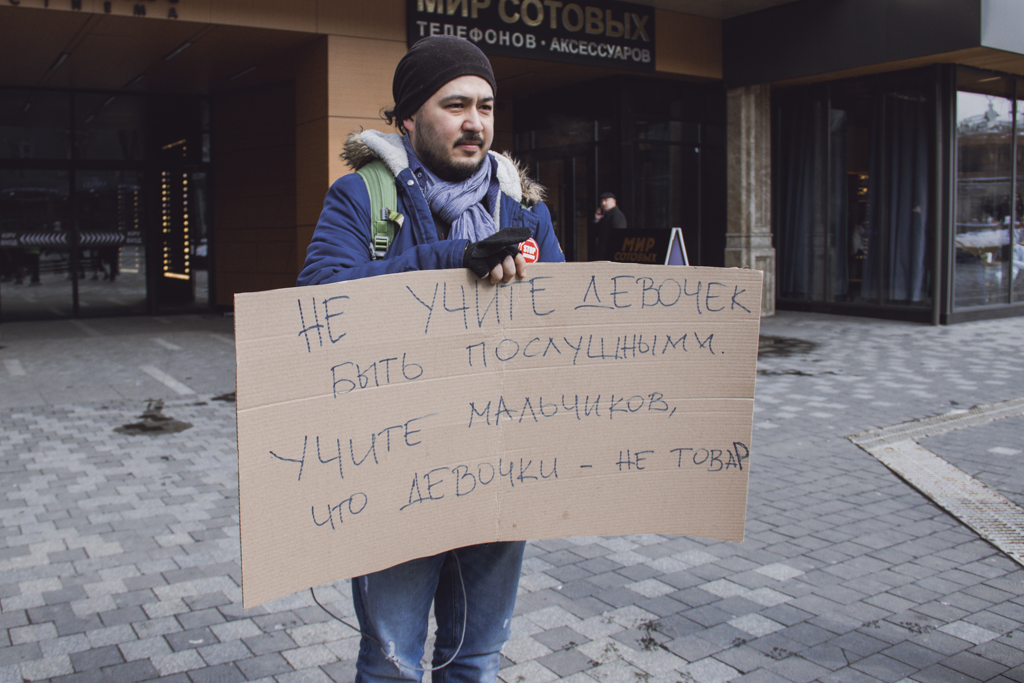 CINEMA
МИР СОТОВЫХ
ТЕЛЕФОНОВ · АКСЕССУАРОВ
STOP
МИР
СОТОВЫХ
НЕ УЧИТЕ ДЕВОЧЕК
БЫТЬ ПОСЛУШНЫМИ.
УЧИТЕ МАЛЬЧИКОВ,
ЧТО ДЕВОЧКИ – НЕ ТОВАР